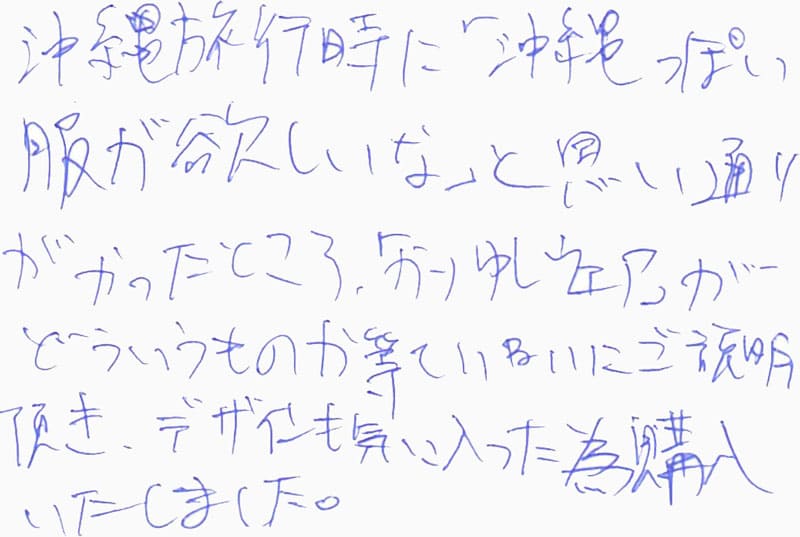 沖縄旅行時に「沖縄っぽい
服が欲しいな」と思い通り
がかったところ、「かりゆしウェア」が
どういうものか等ていねいにご説明
頂き、デザインも気に入った為購入
いたしました。